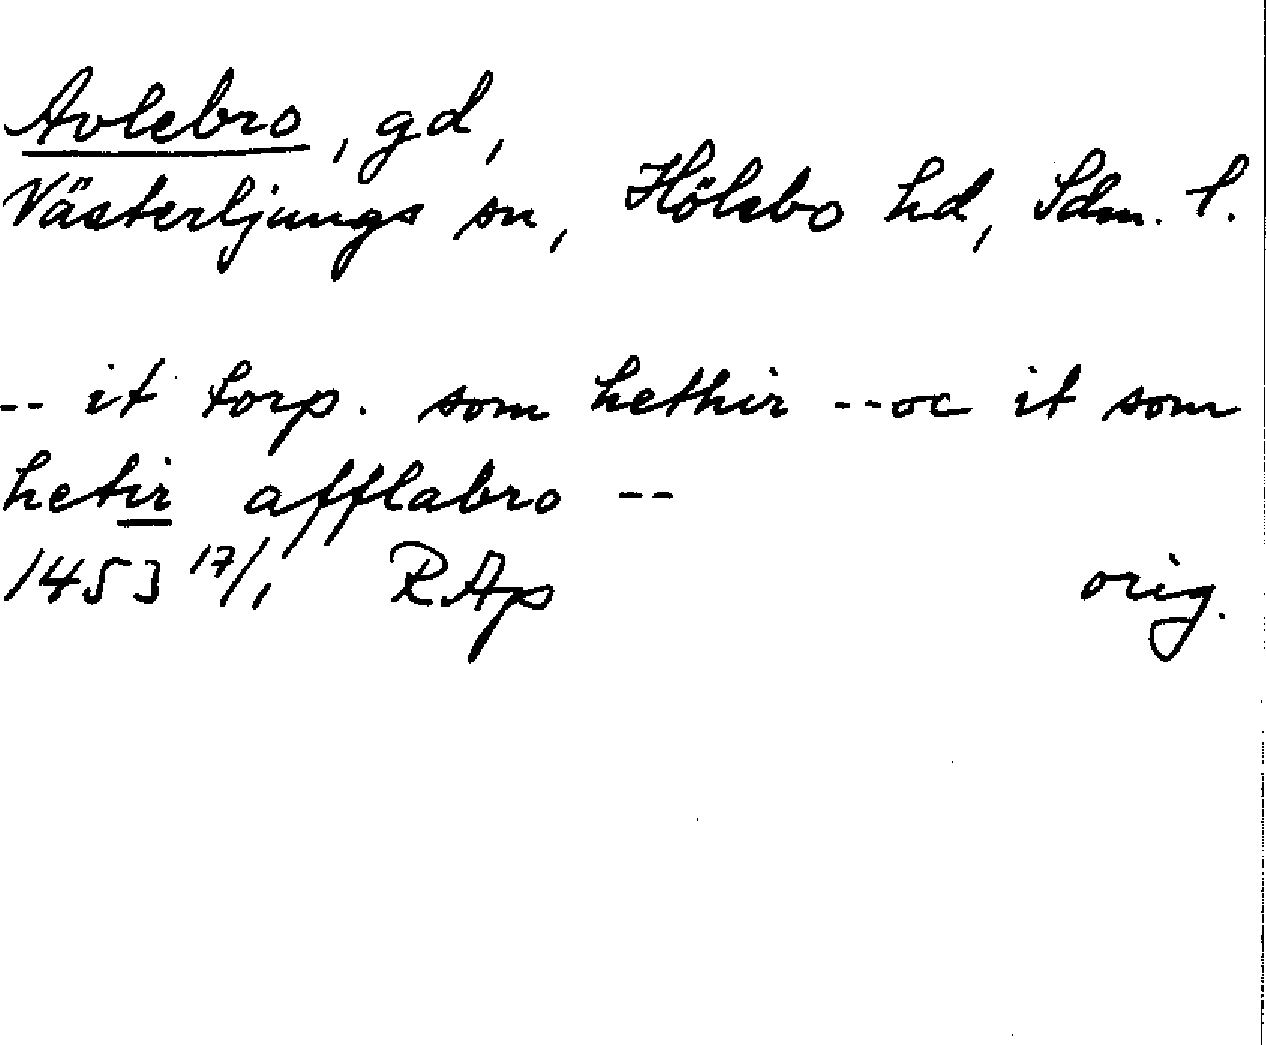 Avlebro, gd,
Västerljungs sn, Hölebo hd, Sdm. l.
-- it torp. som hethir --oc it som
hetir afflabro --
1453 17/1 RAp orig.